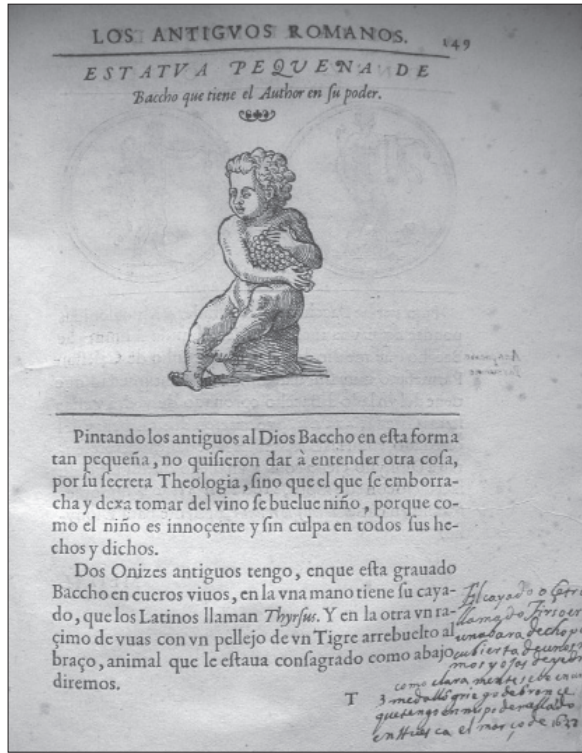 LOS ANTIGVOS ROMANOS. 149
ESTATVA PEQUENA DE
Baccho que tiene el Author en ſu poder.
Pintando los antiguos al Dios Baccho en eſta forma
tan pequeña, no quiſieron dar à entender otra coſa,
por ſu ſecreta Theologia, ſino que el que ſe emborra-
cha y dexa tomar del vino ſe buelue niño, porque co-
mo el niño es innoçente y ſin culpa en todos ſus he-
chos y dichos.
Dos Onizes antiguos tengo, enque eſta grauado
Baccho en cueros viuos, en la vna mano tiene ſu caya-
do, que los Latinos llaman Thyrſus. Y en la otra vn ra-
çimo de vuas con vn pellejo de vn Tigre arrebuelto al
braço, animal que le eſtaua conſagrado como abajo
diremos.
T
El cayado o
llamado Tirso
una bara
cubierta de
mos y ojas de
como claramente se ve en
3 medallas griego de bronce
que tengo en mi poder
en Huesca el março de 1637